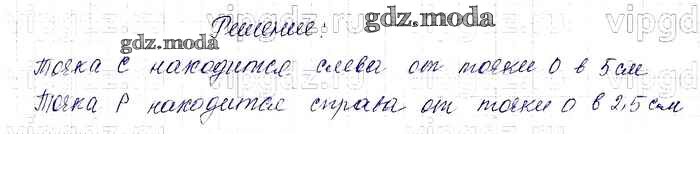 Решение:
gdz.moda
gdz.moda
Точка С находится слева от точки О в 5 см
Точка Р находится справа от точки О в 2,5 см